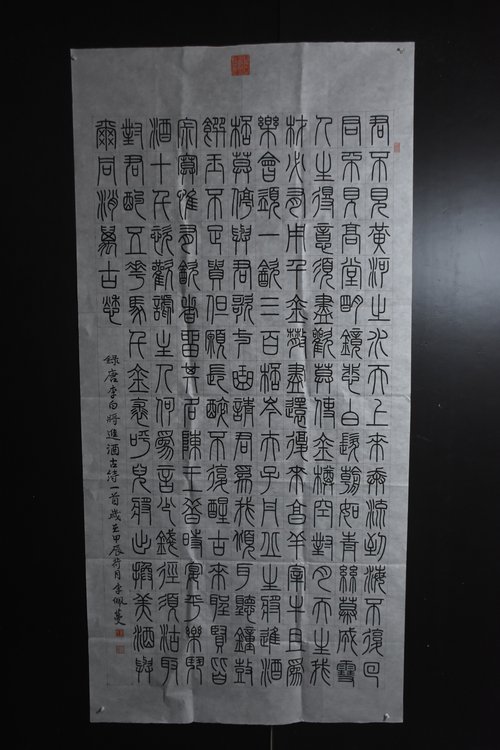 君不見黃河之水天上來奔流到海不復回
君不見高堂明鏡悲白髮朝如青絲暮成雪
人生得意須盡歡莫使金樽空對月天生我
材必有用千金散盡還復來烹羊宰牛且爲
樂會須一飲三百杯岑夫子丹丘生將進酒
杯莫停與君歌一曲請君爲我傾耳聽鐘鼓
饌玉不足貴但願長醉不復醒古來聖賢皆
寂寞惟有飲者留其名陳王昔時宴平樂斗
酒十千恣歡謔主人何爲言少錢徑須沽取
對君酌五花馬千金裘呼兒將出換美酒與
爾同消萬古愁
錄唐李白將進酒古詩一首歲在甲辰荷月李佩蔓